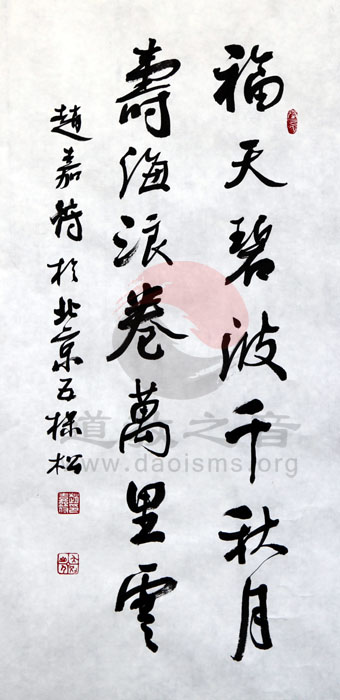 福天碧波千秋月
壽海浪卷萬里雲
趙嘉符於北京五棵松
道教之音
www.daoisms.org